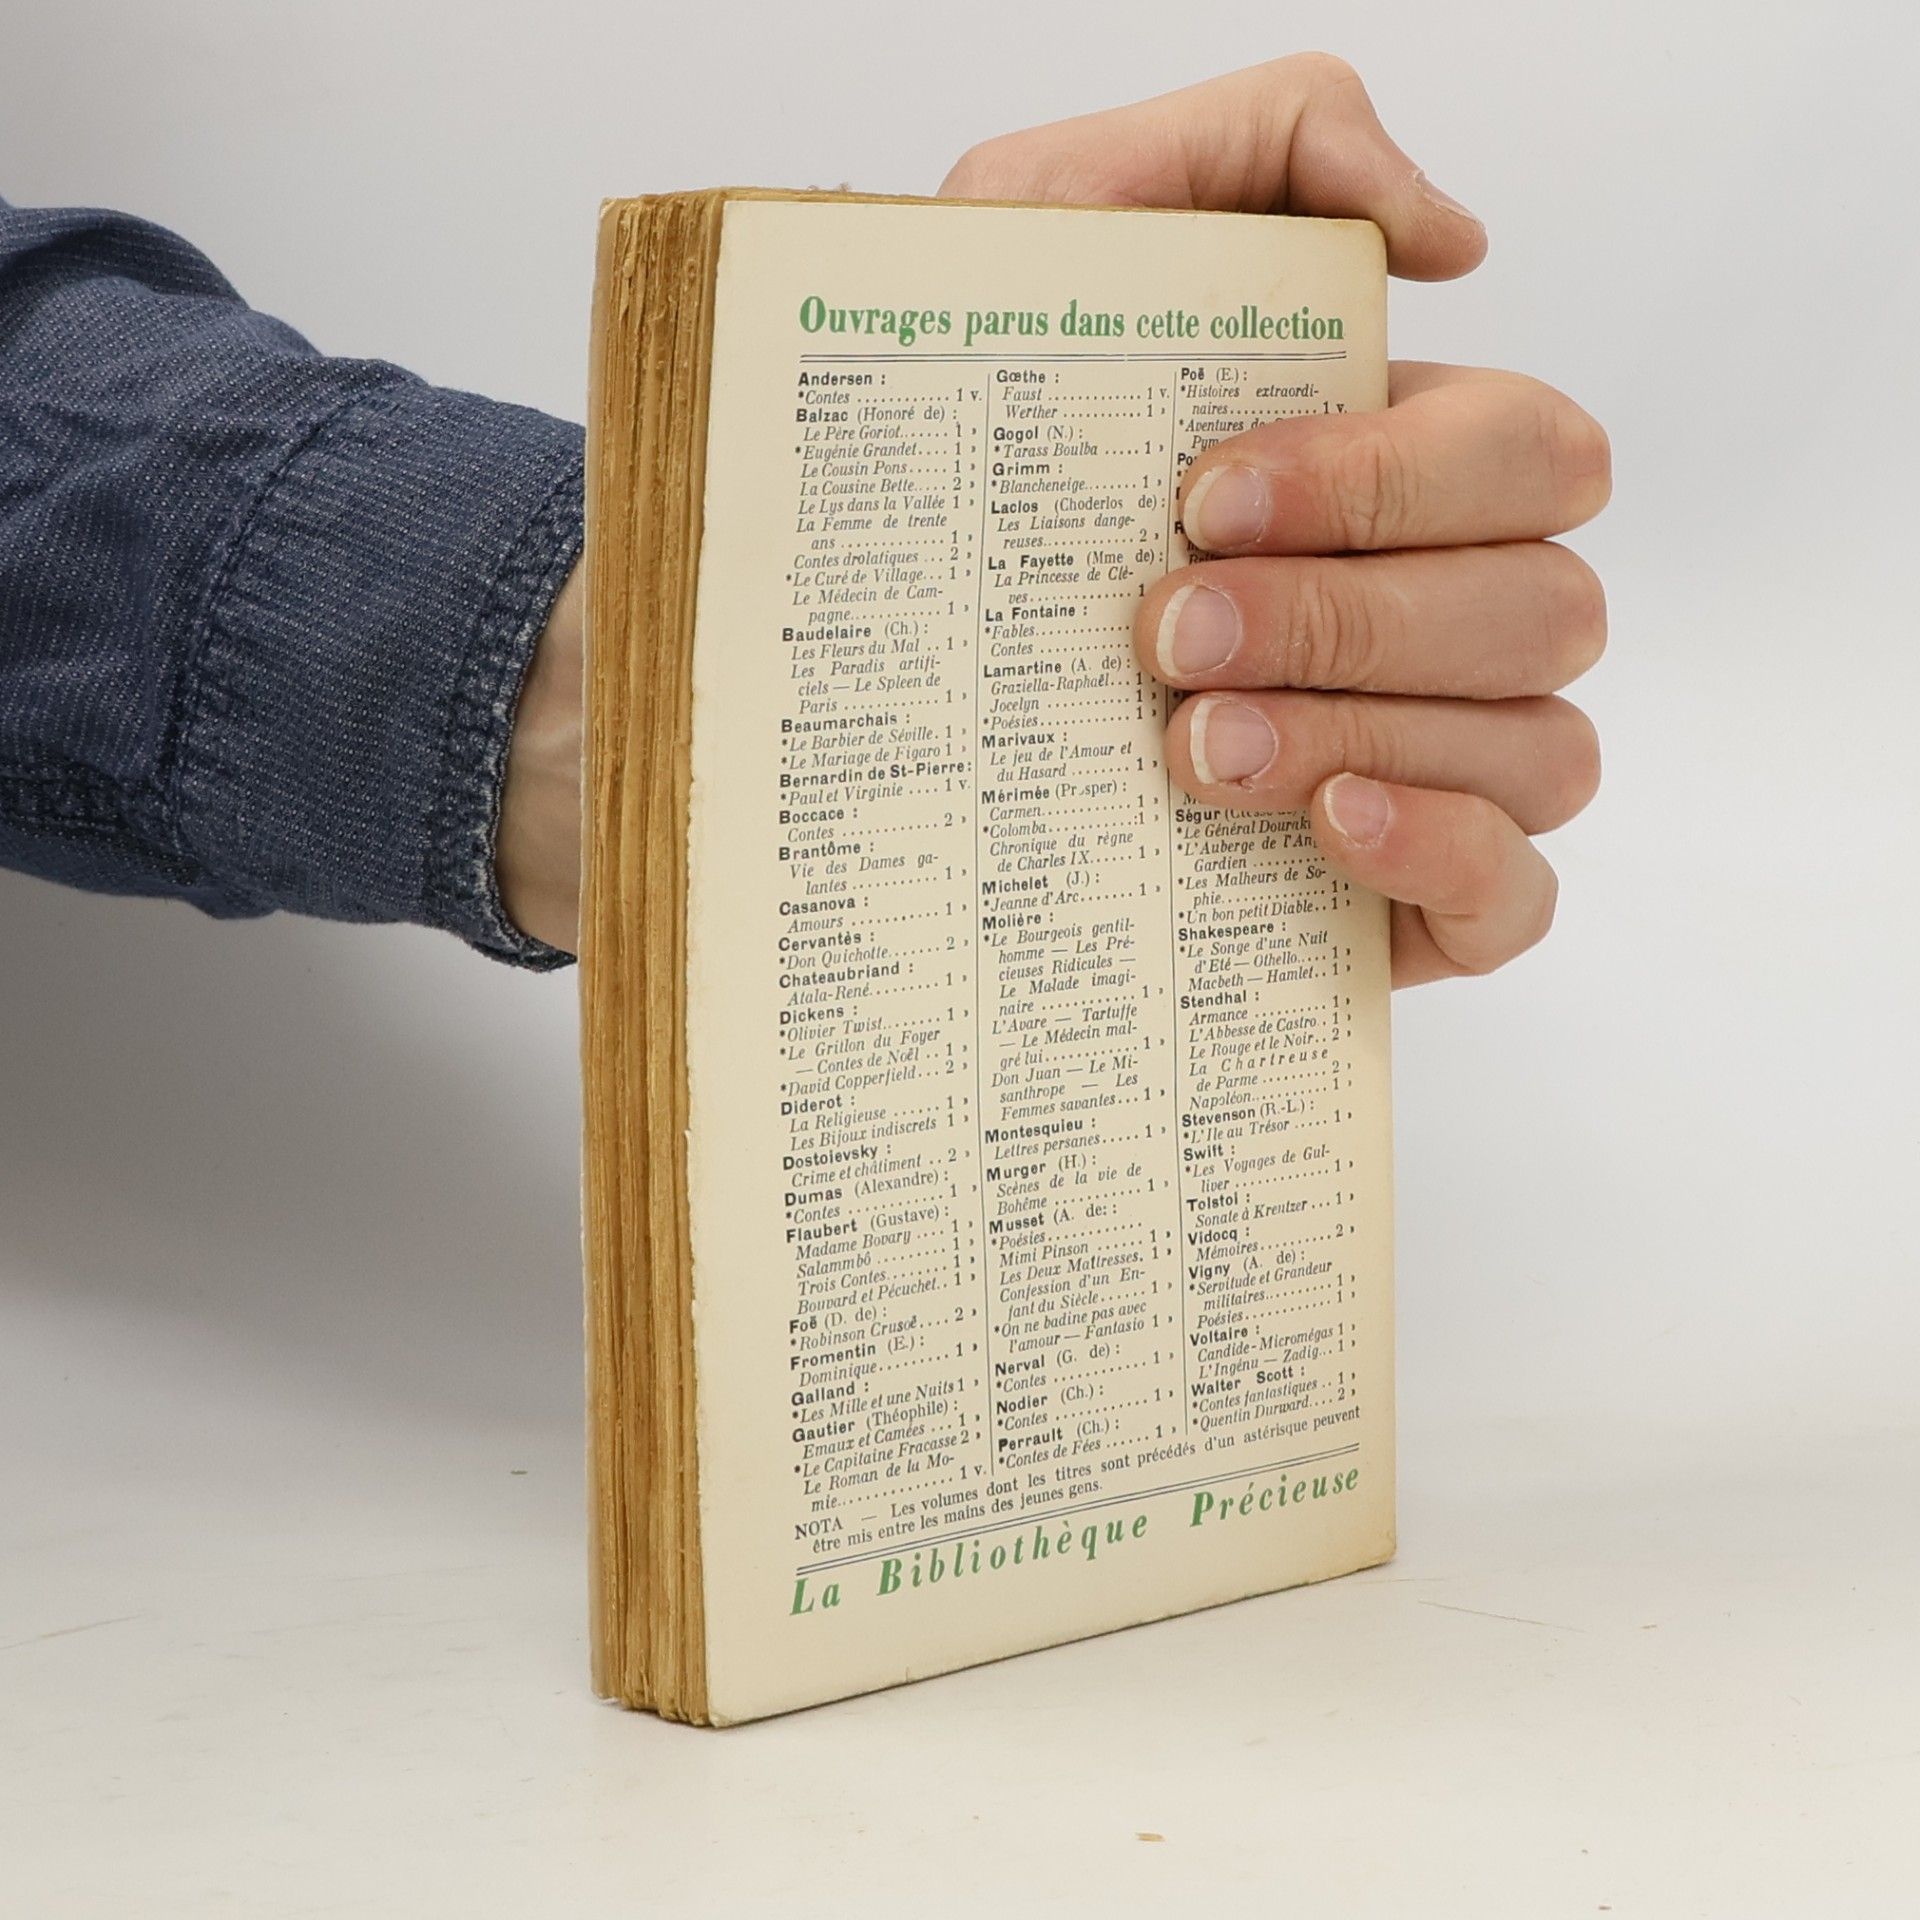 Ouvrages parus dans cette collection
Andersen :
*Contes ............ 1 v.
Balzac (Honoré de) :
Le Père Goriot....... 1 »
*Eugénie Grandet.... 1 »
Le Cousin Pons..... 1 »
La Cousine Bette..... 2 »
Le Lys dans la Vallée 1 »
La Femme de trente
ans ............. 1 »
Contes drolatiques ... 2 »
*Le Curé de Village... 1 »
Le Médecin de Cam-
pagne............ 1 »
Baudelaire (Ch.) :
Les Fleurs du Mal .. 1 »
Les Paradis artifi-
ciels — Le Spleen de
Paris ............ 1 »
Beaumarchais :
*Le Barbier de Séville. 1 »
*Le Mariage de Figaro 1 »
Bernardin de St-Pierre:
*Paul et Virginie .... 1 v.
Boccace :
Contes ............ 2 »
Brantôme :
Vie des Dames ga-
lantes ........... 1 »
Casanova :
Amours ........... 1 »
Cervantès :
*Don Quichotte....... 2 »
Chateaubriand :
Atala-René......... 1 »
Dickens :
*Olivier Twist........ 1 »
*Le Grillon du Foyer
— Contes de Noël .. 1 »
*David Copperfield... 2 »
Diderot :
La Religieuse ...... 1 »
Les Bijoux indiscrets 1 »
Dostoïevsky :
Crime et châtiment .. 2 »
Dumas (Alexandre) :
*Contes ........... 1 »
Flaubert (Gustave) :
Madame Bovary .... 1 »
Salammbô ......... 1 »
Trois Contes........ 1 »
Bouvard et Pécuchet.. 1 »
Foë (D. de) :
*Robinson Crusoë.... 2 »
Fromentin (E.) :
Dominique......... 1 »
Galland :
*Les Mille et une Nuits 1 »
Gautier (Théophile) :
Emaux et Camées ... 1 »
*Le Capitaine Fracasse 2 »
Le Roman de la Mo-
mie.............. 1 v.
Gœthe :
Faust ............. 1 v.
Werther ........... 1 »
Gogol (N.) :
*Tarass Boulba ..... 1 »
Grimm :
*Blancheneige........ 1 »
Laclos (Choderlos de) :
Les Liaisons dange-
reuses............. 2 »
La Fayette (Mme de) :
La Princesse de Clè-
ves.............. 1
La Fontaine :
*Fables............
Contes ............
Lamartine (A. de) :
Graziella-Raphaël... 1
Jocelyn ........... 1 »
*Poésies............ 1 »
Marivaux :
Le jeu de l'Amour et
du Hasard ........ 1 »
Mérimée (Pr sper) :
Carmen............ 1 »
*Colomba...........:1 »
Chronique du règne
de Charles IX...... 1 »
Michelet (J.) :
*Jeanne d'Arc....... 1 »
Molière :
*Le Bourgeois gentil-
homme — Les Pré-
cieuses Ridicules —
Le Malade imagi-
naire ............ 1 »
L'Avare — Tartuffe
— Le Médecin mal-
gré lui............ 1 »
Don Juan — Le Mi-
santhrope — Les
Femmes savantes... 1 »
Montesquieu :
Lettres persanes..... 1 »
Murger (H.) :
Scènes de la vie de
Bohême .......... 1 »
Musset (A. de: :
*Poésies............
Mimi Pinson ...... 1 »
Les Deux Maîtresses. 1 »
Confession d'un En-
fant du Siècle...... 1 »
*On ne badine pas avec
l'amour — Fantasio 1 »
Nerval (G. de) :
*Contes ............ 1 »
Nodier (Ch.) :
*Contes ............ 1 »
Perrault (Ch.) :
*Contes de Fées ...... 1 »
Poë (E.) :
*Histoires extraordi-
naires............ 1 v.
*Aventures
Pym
Ségur
*Le Général
*L'Auberge de
Gardien ..........
*Les Malheurs de So-
phie.............. 1 »
*Un bon petit Diable.. 1 »
Shakespeare :
*Le Songe d'une Nuit
d'Eté — Othello..... 1 »
Macbeth — Hamlet.. 1 »
Stendhal :
Armance .......... 1 »
L'Abbesse de Castro.. 1 »
Le Rouge et le Noir.. 2 »
La Chartreuse
de Parme ......... 2 »
Napoléon........... 1 »
Stevenson (R.-L.) :
*L'Ile au Trésor ..... 1 »
Swift :
*Les Voyages de Gul-
liver ............. 1 »
Tolstoï :
Sonate à Kreutzer ... 1 »
Vidocq :
Mémoires.......... 2 »
Vigny (A. de) :
*Servitude et Grandeur
militaires.......... 1 »
Poésies............ 1 »
Voltaire :
Candide - Micromégas 1 »
L'Ingénu — Zadig... 1 »
Walter Scott :
*Contes fantastiques .. 1 »
*Quentin Durward.... 2 »
NOTA — Les volumes dont les titres sont précédés d'un astérisque peuvent
être mis entre les mains des jeunes gens.
La Bibliothèque Précieuse